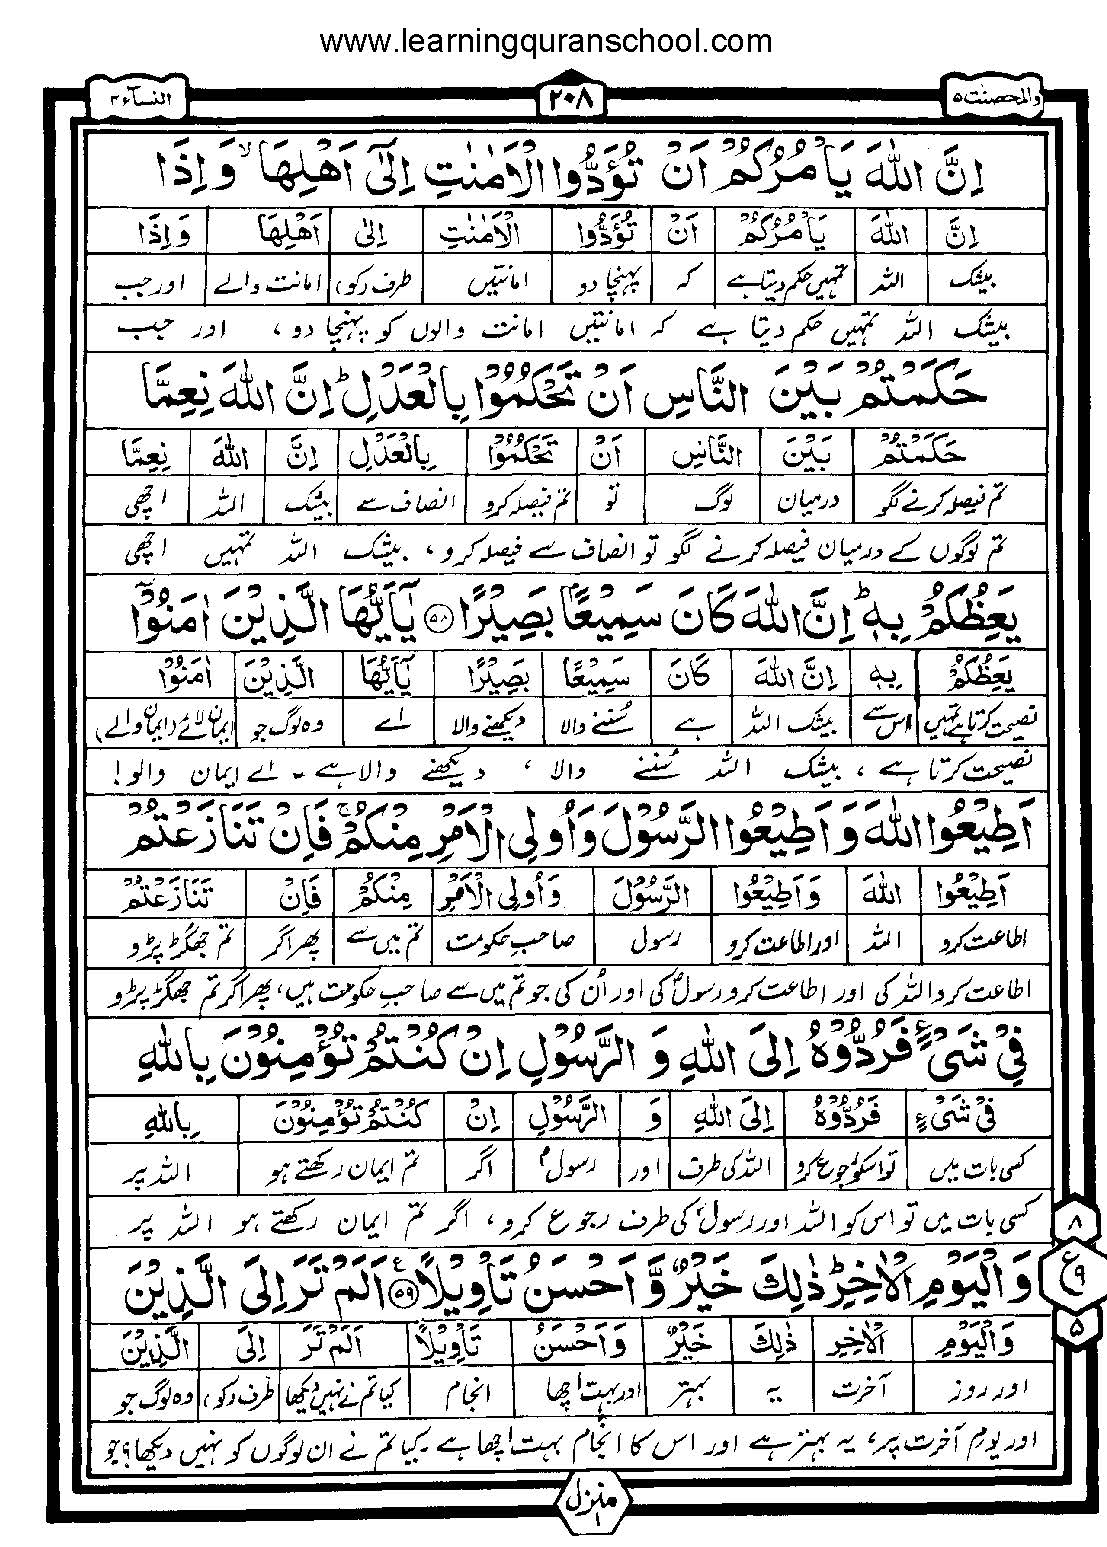 www.learningquranschool.com
والمحصنت ۵
۲۰۸
النسآء ۴
اِنَّ اللّٰهَ يَاْمُرُكُمْ اَنْ تُؤَدُّوا الْاَمٰنٰتِ اِلٰٓى اَهْلِهَا ۙ وَاِذَا
اِنَّ اللّٰهَ يَاْمُرُكُمْ اَنْ تُؤَدُّوا الْاَمٰنٰتِ اِلٰى اَهْلِهَا وَاِذَا
بیشک اللہ تمہیں حکم دیتا ہے کہ پہنچا دو امانتیں طرف (کو) امانت والے اور جب
بیشک اللہ تمہیں حکم دیتا ہے کہ امانتیں امانت والوں کو پہنچا دو ، اور جب
حَكَمْتُمْ بَيْنَ النَّاسِ اَنْ تَحْكُمُوْا بِالْعَدْلِ ؕ اِنَّ اللّٰهَ نِعِمَّا
حَكَمْتُمْ بَيْنَ النَّاسِ اَنْ تَحْكُمُوْا بِالْعَدْلِ اِنَّ اللّٰهَ نِعِمَّا
تم فیصلہ کرنے لگو درمیان لوگ تو تم فیصلہ کرو انصاف سے بیشک اللہ اچھی
تم لوگوں کے درمیان فیصلہ کرنے لگو تو انصاف سے فیصلہ کرو ، بیشک اللہ تمہیں اچھی
يَعِظُكُمْ بِهٖ ؕ اِنَّ اللّٰهَ كَانَ سَمِيْعًۢا بَصِيْرًا ۵۸ يٰٓاَيُّهَا الَّذِيْنَ اٰمَنُوْٓا
يَعِظُكُمْ بِهٖ اِنَّ اللّٰهَ كَانَ سَمِيْعًا بَصِيْرًا يٰٓاَيُّهَا الَّذِيْنَ اٰمَنُوْا
نصیحت کرتا ہے تمہیں اس سے بیشک اللہ ہے سُننے والا دیکھنے والا اے وہ لوگ جو ایمان لائے (ایمان والے)
نصیحت کرتا ہے ، بیشک اللہ سُننے والا ، دیکھنے والا ہے ۔ اے ایمان والو!
اَطِيْعُوا اللّٰهَ وَاَطِيْعُوا الرَّسُوْلَ وَاُولِى الْاَمْرِ مِنْكُمْ ۚ فَاِنْ تَنَازَعْتُمْ
اَطِيْعُوا اللّٰهَ وَاَطِيْعُوا الرَّسُوْلَ وَاُولِى الْاَمْرِ مِنْكُمْ فَاِنْ تَنَازَعْتُمْ
اطاعت کرو اللہ اور اطاعت کرو رسول صاحبِ حکومت تم میں سے پھر اگر تم جھگڑ پڑو
اطاعت کرو اللہ کی اور اطاعت کرو رسولؐ کی اور اُن کی جو تم میں سے صاحبِ حکومت ہیں، پھر اگر تم جھگڑ پڑو
فِىْ شَىْءٍ فَرُدُّوْهُ اِلَى اللّٰهِ وَ الرَّسُوْلِ اِنْ كُنْتُمْ تُؤْمِنُوْنَ بِاللّٰهِ
فِىْ شَىْءٍ فَرُدُّوْهُ اِلَى اللّٰهِ وَ الرَّسُوْلِ اِنْ كُنْتُمْ تُؤْمِنُوْنَ بِاللّٰهِ
کسی بات میں تو اسکو رجوع کرو اللہ کی طرف اور رسولؐ اگر تم ایمان رکھتے ہو اللہ پر
کسی بات میں تو اس کو اللہ اور رسولؐ کی طرف رجوع کرو، اگر تم ایمان رکھتے ہو اللہ پر
وَالْيَوْمِ الْاٰخِرِ ؕ ذٰلِكَ خَيْرٌ وَّاَحْسَنُ تَاْوِيْلًا ۵۹ اَلَمْ تَرَ اِلَى الَّذِيْنَ
وَالْيَوْمِ الْاٰخِرِ ذٰلِكَ خَيْرٌ وَاَحْسَنُ تَاْوِيْلًا اَلَمْ تَرَ اِلَى الَّذِيْنَ
اور روز آخرت یہ بہتر اور بہت اچھا انجام کیا تم نے نہیں دیکھا طرف (کو) وہ لوگ جو
اور یومِ آخرت پر، یہ بہتر ہے اور اس کا انجام بہت اچھا ہے ۔ کیا تم نے ان لوگوں کو نہیں دیکھا؟ جو
۸
ع ۹
۵
منزل ۱